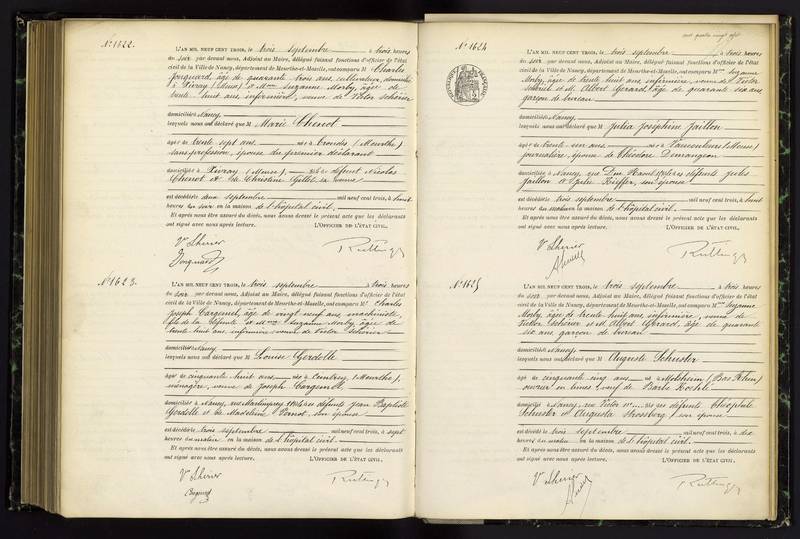 N° 1622.
L'AN MIL NEUF CENT TROIS, le trois septembre à trois heures
du soir par devant nous, Adjoint au Maire, délégué faisant fonctions d'officier de l'état
civil de la Ville de Nancy, département de Meurthe-et-Moselle, ont comparu Mrs Charles
âgé de quarante trois ans, cultivateur, domicilié
à (Meuse) et Mme Suzanne Morby, âgée de
trente huit ans, infirmière, veuve de Victor
domiciliés à Nancy
lesquels nous ont déclaré que M Marie Chenot
âgée de trente sept ans née à (Meurthe)
sans profession, épouse du premier déclarant
domiciliée à (Meuse), fille de défunt Nicolas
Chenot et de Christine sa veuve
est décédée le deux septembre mil neuf cent trois, à huit
heures du soir en la maison de l'hôpital civil.
Et après nous être assuré du décès, nous avons dressé le présent acte que les déclarants
ont signé avec nous après lecture. L'OFFICIER DE L'ÉTAT CIVIL,
Ve
N° 1623.
L'AN MIL NEUF CENT TROIS, le trois septembre à trois heures
du soir par devant nous, Adjoint au Maire, délégué faisant fonctions d'officier de l'état
civil de la Ville de Nancy, département de Meurthe-et-Moselle, ont comparu Mrs Charles
Joseph âgé de vingt neuf ans, machiniste,
fils de la défunte et Mme Suzanne Morby, âgée de
trente huit ans, infirmière, veuve de Victor
domiciliés à Nancy
lesquels nous ont déclaré que M Louise Gerdolle
âgée de cinquante huit ans née à (Meurthe),
ménagère, veuve de Joseph
domiciliée à Nancy, rue de défunts Jean Baptiste
Gerdolle et de Madeleine son épouse
est décédée le trois septembre mil neuf cent trois, à sept
heures du matin en la maison de l'hôpital civil.
Et après nous être assuré du décès, nous avons dressé le présent acte que les déclarants
ont signé avec nous après lecture. L'OFFICIER DE L'ÉTAT CIVIL,
Ve
N° 1624
L'AN MIL NEUF CENT TROIS, le trois septembre à trois heures
du soir par devant nous, Adjoint au Maire, délégué faisant fonctions d'officier de l'état
civil de la Ville de Nancy, département de Meurthe-et-Moselle, ont comparu Mme Suzanne
Morby, âgée de trente huit ans, infirmière, veuve de Victor
et M. Albert Gérard, âgé de quarante six ans
garçon de bureau
domiciliés à Nancy
lesquels nous ont déclaré que M Julia Joséphine Jaillon
âgée de trente un ans née à (Meuse)
journalière, épouse de Théodore Demangeon
domiciliée à Nancy, rue de défunts Jules
Jaillon et Julie son épouse
est décédée le trois septembre mil neuf cent trois, à huit
heures du matin en la maison de l'hôpital civil.
Et après nous être assuré du décès, nous avons dressé le présent acte que les déclarants
ont signé avec nous après lecture. L'OFFICIER DE L'ÉTAT CIVIL,
Ve
N° 1625
L'AN MIL NEUF CENT TROIS, le trois septembre à trois heures
du soir par devant nous, Adjoint au Maire, délégué faisant fonctions d'officier de l'état
civil de la Ville de Nancy, département de Meurthe-et-Moselle, ont comparu Mme Suzanne
Morby, âgée de trente huit ans, infirmière, veuve de
Victor et M. Albert Gérard, âgé de quarante
six ans, garçon de bureau
domiciliés à Nancy
lesquels nous ont déclaré que M Auguste Schuster
âgé de cinquante cinq ans né à Molsheim (Bas Rhin)
ouvrier en veuf de Barbe
domicilié à Nancy, rue Victor de défunts Théophile
Schuster et Augusta Strossberg son épouse
est décédé le trois septembre mil neuf cent trois, à dix
heures du matin en la maison de l'hôpital civil.
Et après nous être assuré du décès, nous avons dressé le présent acte que les déclarants
ont signé avec nous après lecture. L'OFFICIER DE L'ÉTAT CIVIL,
Ve